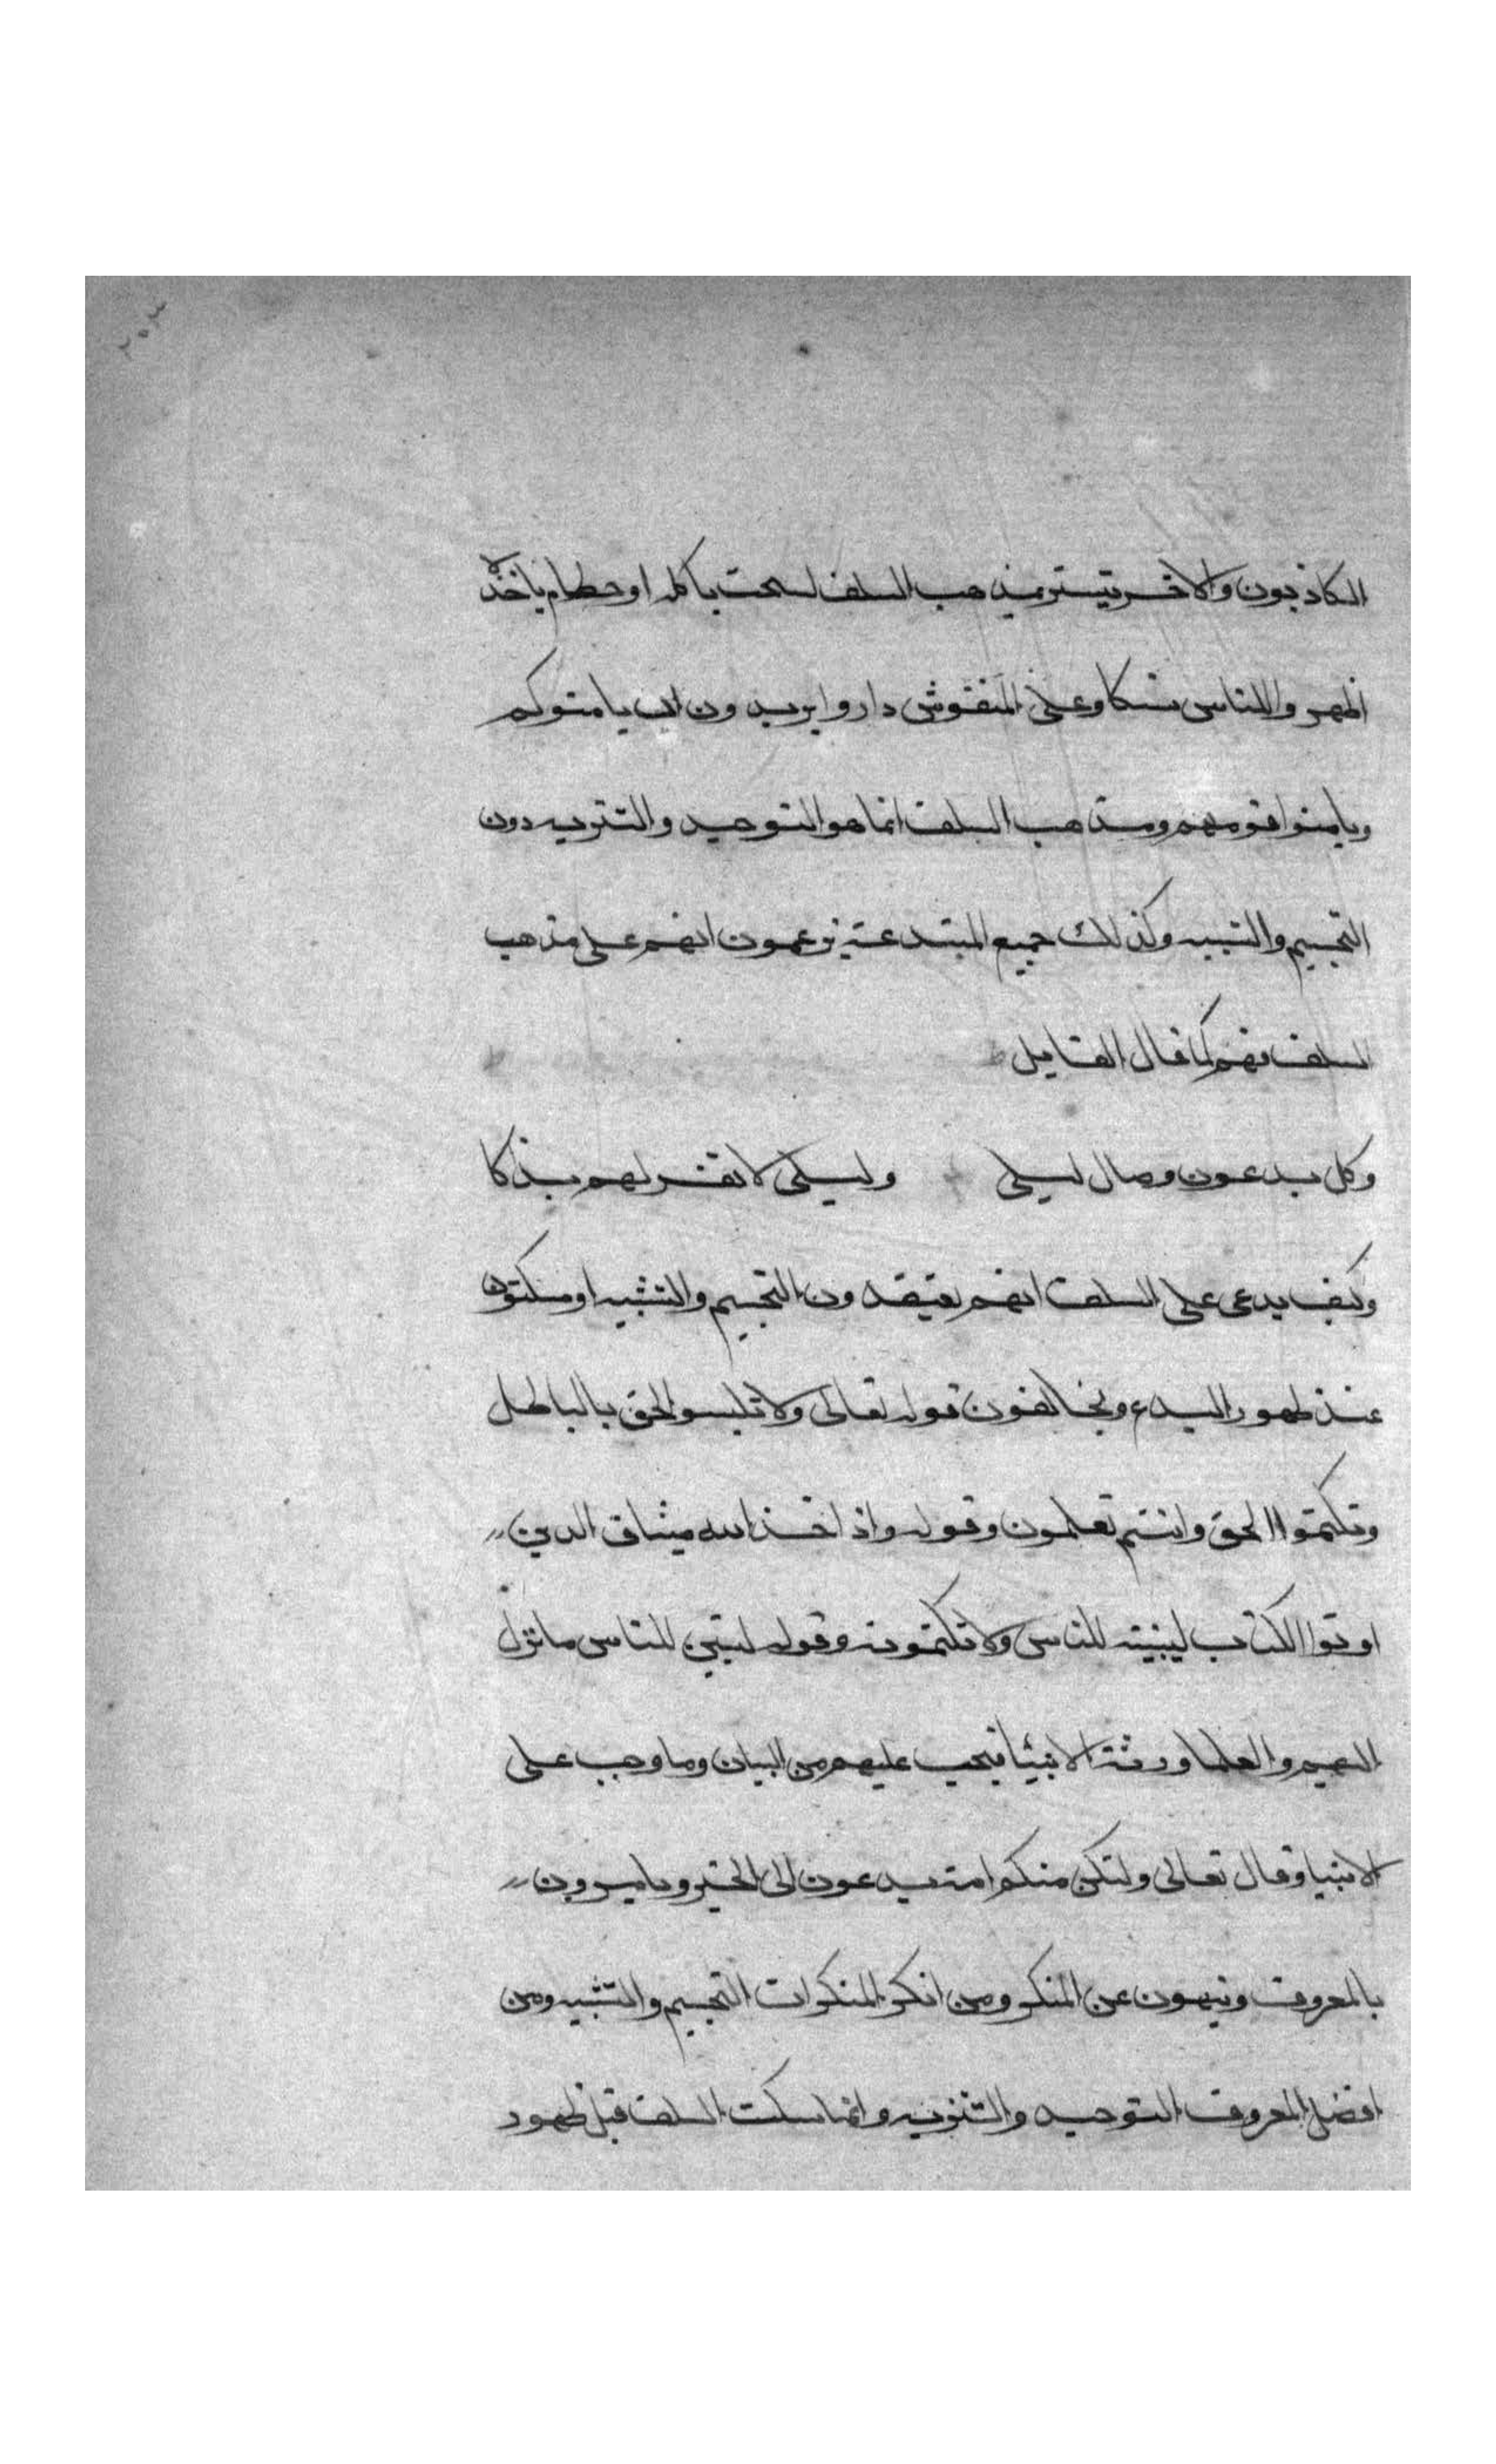 ٢٠٣
الكاذبون والاخر يتستر بمذهب السلف لسحت ياكله او حطام ياخذه
اظهروا للناس نسكا وعلى المنقوش داروا يريدون ان يامنوكم
ويامنوا قومهم ومذهب السلف انما هو التوحيد والتنزيه دون
التجسيم والتشبيه وكذلك جميع المبتدعة يزعمون انهم على مذهب
السلف فهم كما قال القايل
وكل يدعون وصال ليلى وليلى لا تقر لهم بذاكا
وكيف يدعى على السلف انهم يعتقدون التجسيم والتشبيه او يسكتون
عند ظهور البدع ويخالفون قوله تعالى ولا تلبسوا الحق بالباطل
وتكتموا الحق وانتم تعلمون وقوله واذ اخذ الله ميثاق الذين
اوتوا الكتاب ليبينه للناس ولا تكتمونه وقوله لتبين للناس ما نزل
اليهم والعلما ورثة الانبيا فيجب عليهم من البيان وما وجب على
الانبيا وقال تعالى ولتكن منكم امة يدعون الى الخير ويامرون
بالمعروف وينهون عن المنكر ومن انكر المنكرات التجسيم والتشبيه ومن
افضل المعروف التوحيد والتنزيه وانما سكت السلف قبل ظهور